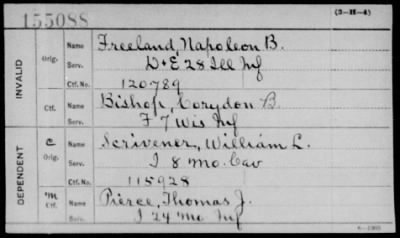 155088 (3-H-4)
INVALID
Orig. Name Freeland, Napoleon B.
Serv. D & E 28 Ill Inf
Ctf. No. 120789
Ctf. Name Bishop, Corydon B.
Serv. F 7 Wis Inf
DEPENDENT
C Orig. Name Scrivener, William L.
Serv. I 8 Mo. Cav
Ctf. No. 115928
M Ctf. Name Pierce, Thomas J.
Serv. I 24 Mo Inf